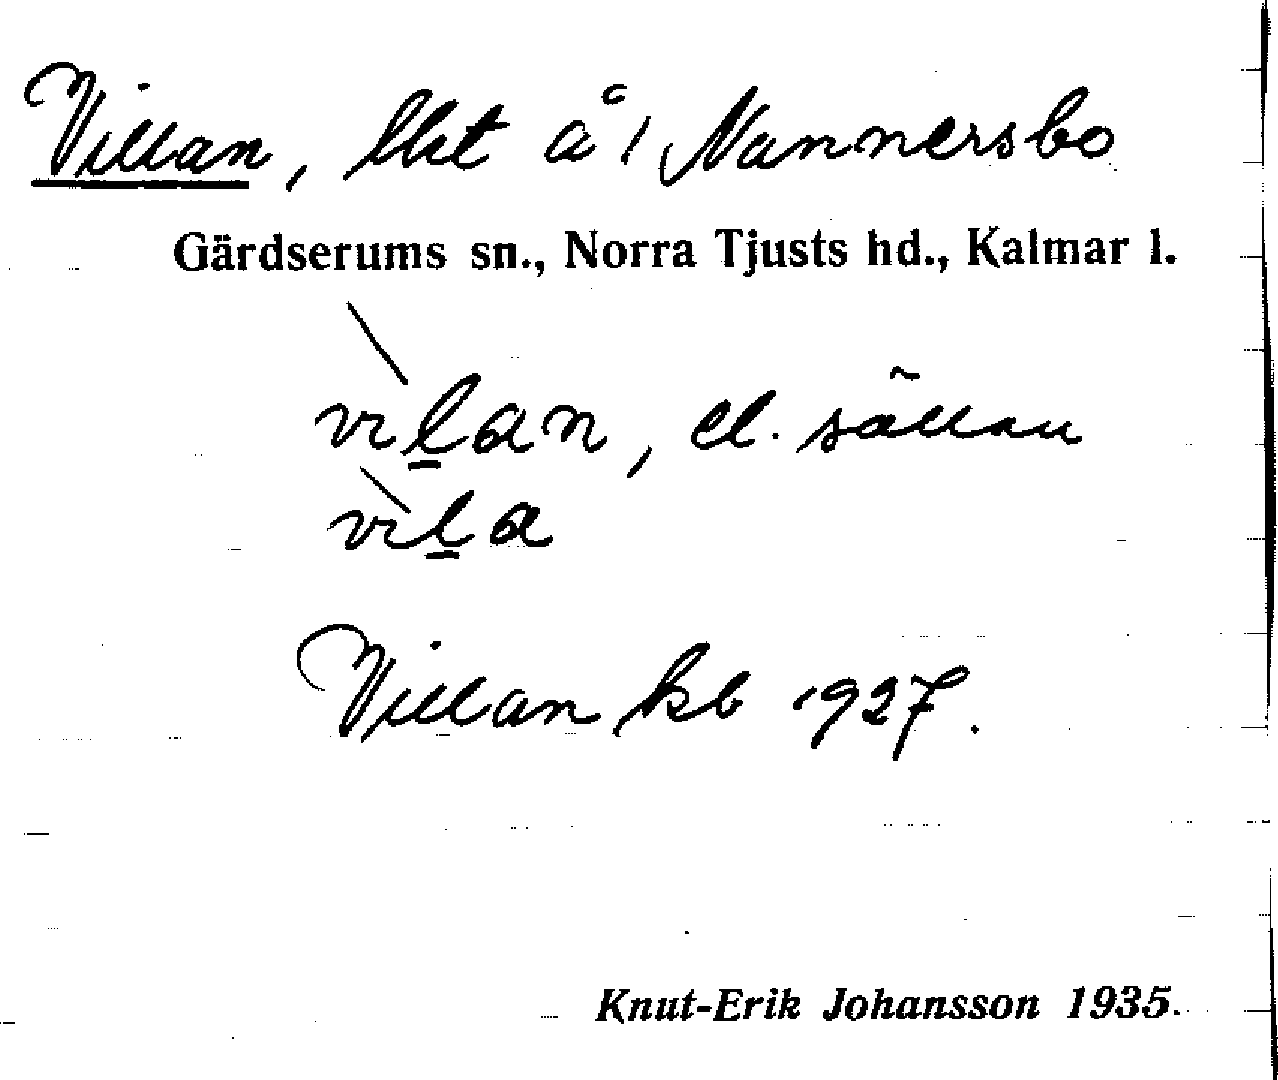 Villan, lht å 1 Nannersbo
Gärdserums sn., Norra Tjusts hd., Kalmar l.
vìl̲an, el. sällan
vìl̲a
Villan kb 1927.
Knut-Erik Johansson 1935.